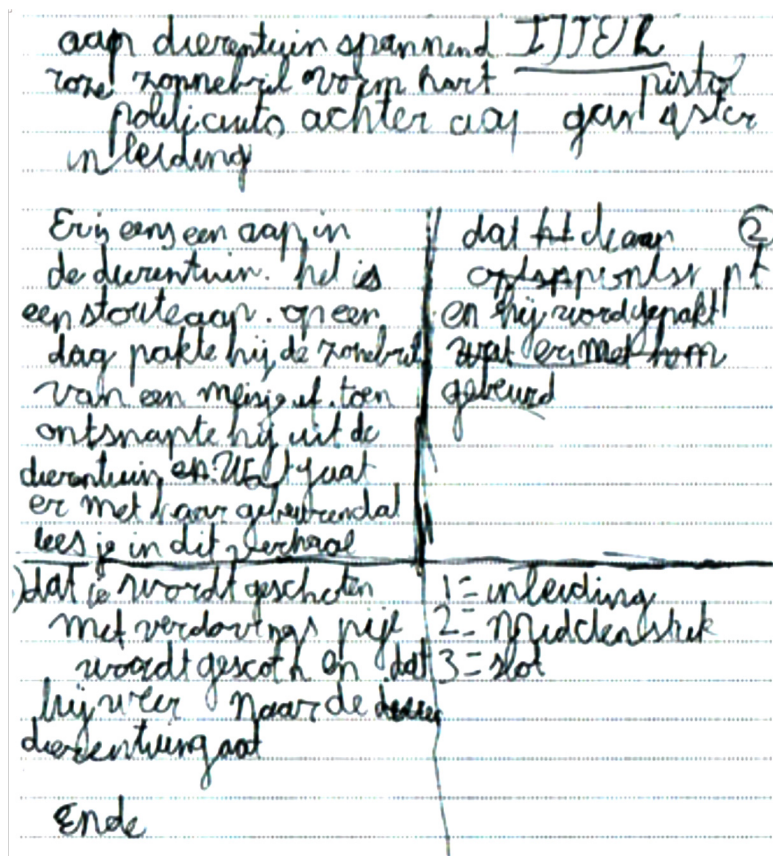 aap dierentuin spannend
roze zonnebril vorm hart pistool
politieauto achter aap gangster
inleiding
Er is eens een aap in
de dierentuin. het is
een stoute aap. op een
dag pakte hij de zonebril
van een meisje af. toen
ontsnapte hij uit de
dierentuin en. Wat gaat
er met haar gebeuren dat
lees je in dit verhaal
dat de aap 2
en hij word gepakt
wat er met hem
gebeurd
dat ie wordt geschoten
met verdovings pijl
wordt en dat
hij weer naar de
dierentuin gaat
Ende
1 = inleiding
2 = Middenstuk
3 = slot